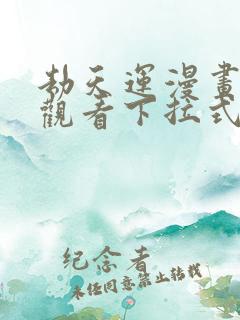 劫天運漫畫
觀看下拉式
纪念着
未经同意禁止转载